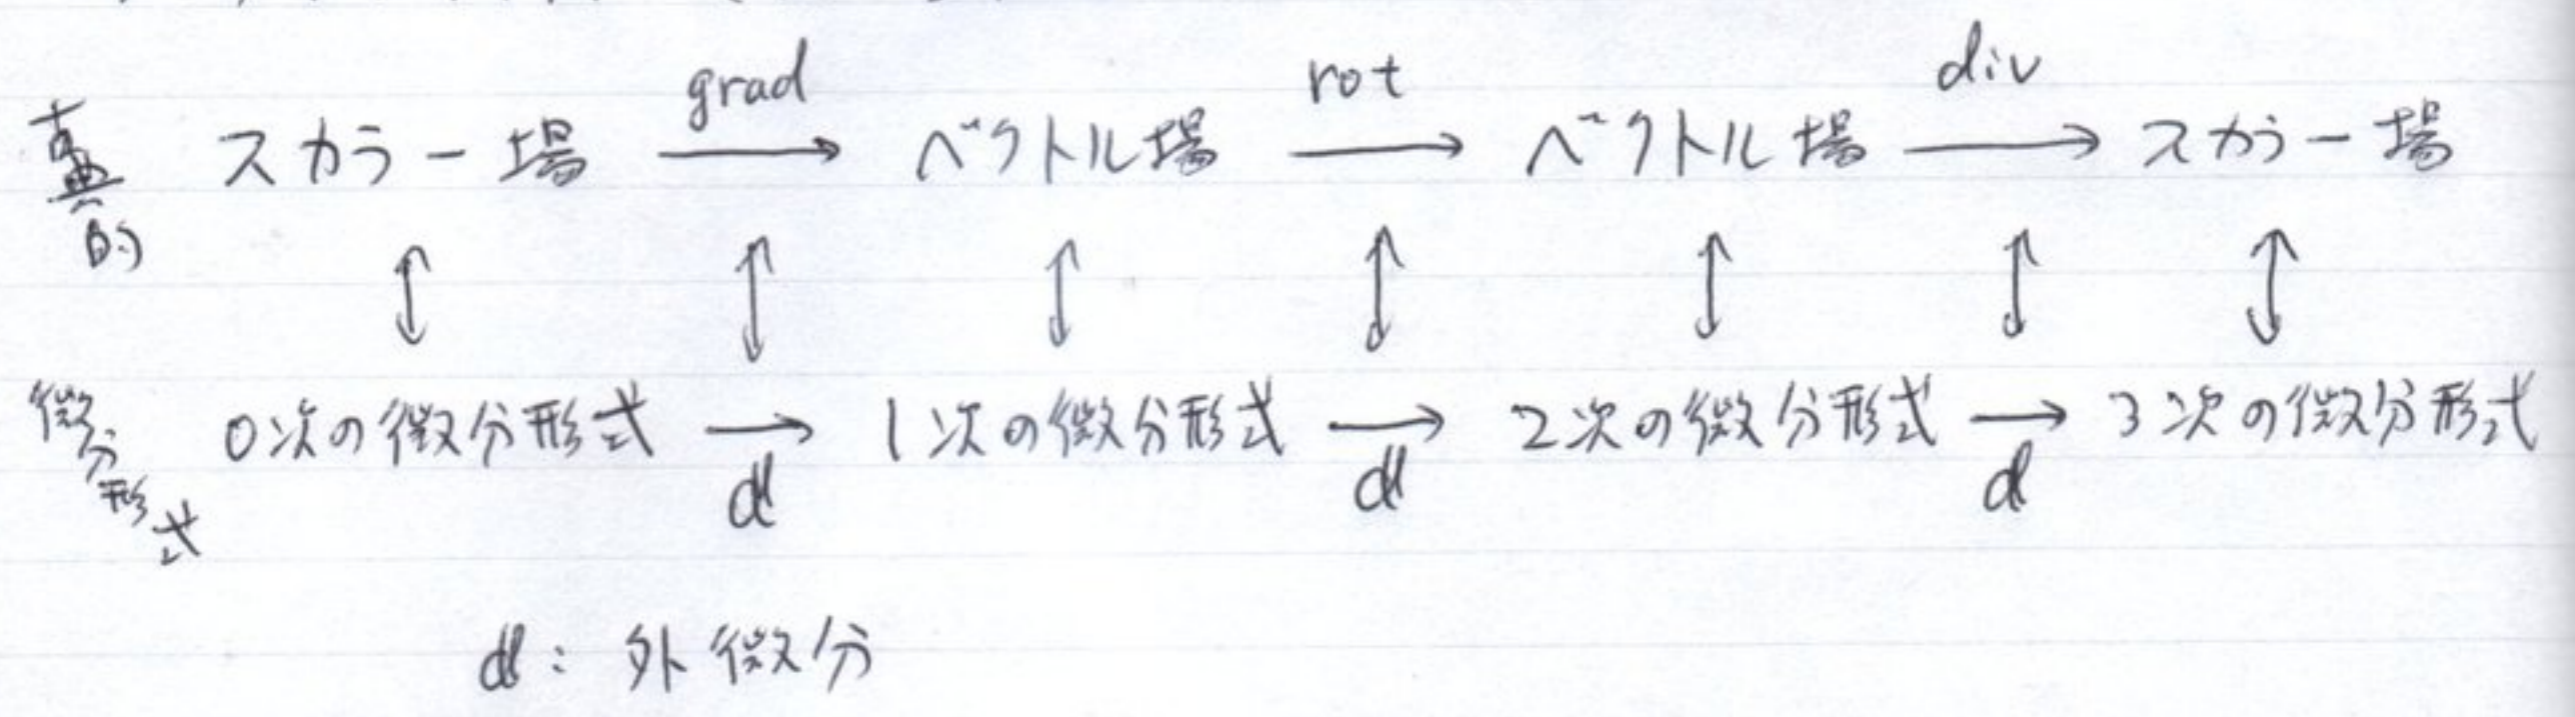 古典的 スカラー場 grad → ベクトル場 rot → ベクトル場 div → スカラー場
↕ ↕ ↕ ↕ ↕ ↕ ↕
微分形式 0次の微分形式 → d 1次の微分形式 → d 2次の微分形式 → d 3次の微分形式
d: 外微分